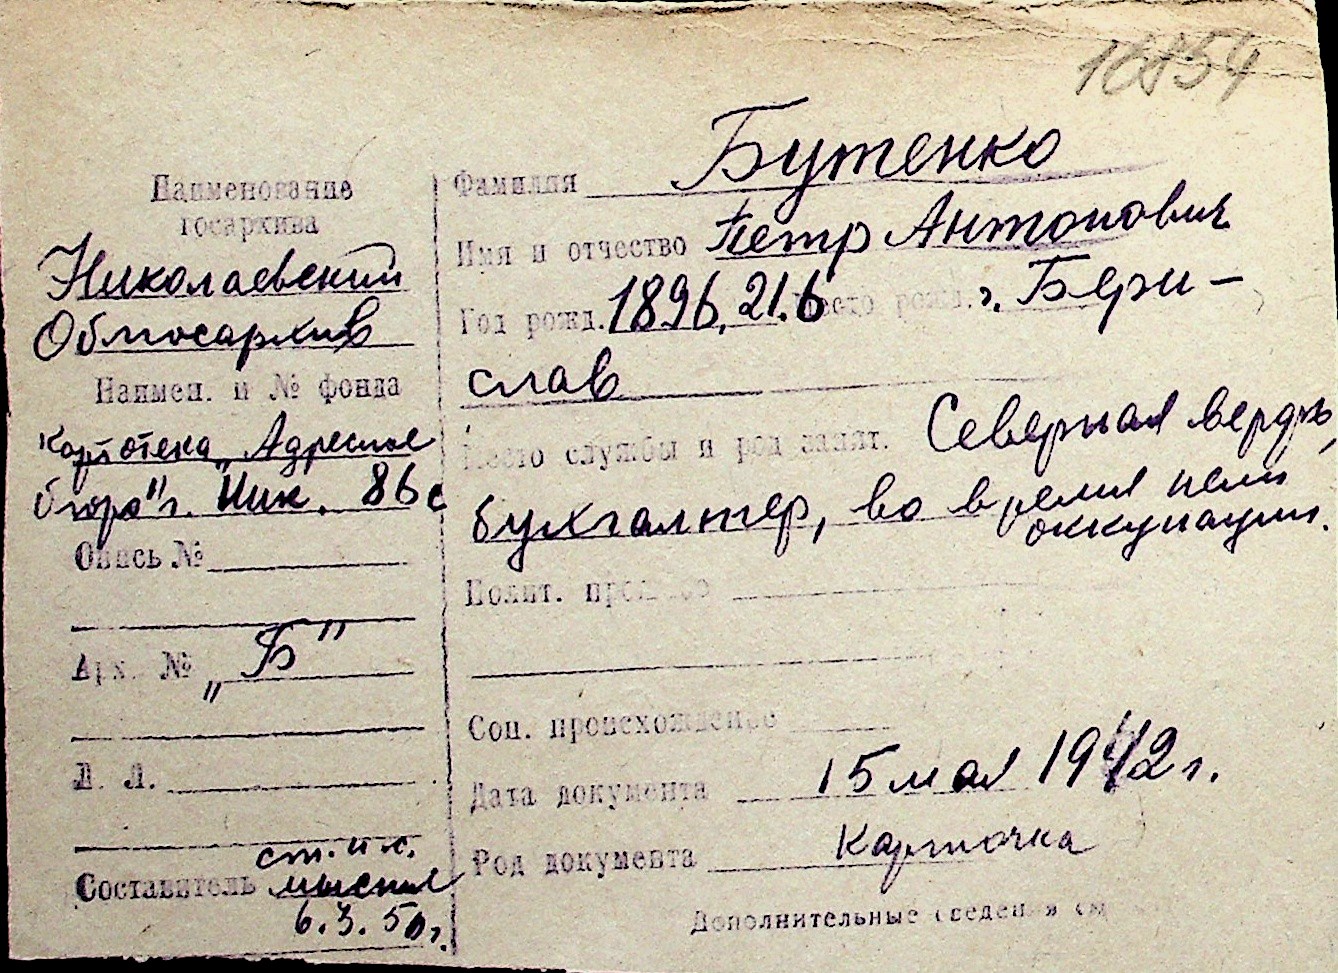 Наименование
госархива
Николаевский
Облгосархив
Наимен. и № фонда
Картотека „Адресное
бюро" г. Ник. 86 с
Опись №
Арх. № „Б"
Л. Л.
Составитель ст. н. с.
6.3.50 г.
Фамилия Бутенко
Имя и отчество Петр Антонович
Год рожд. 1896, 21.6 Место рожд. г. Бери-
слав
Место службы и род занят. Северная верфь,
бухгалтер, во время нем.
оккупации.
Полит. прошлое
Соц. происхождение
Дата документа 15 мая 1942 г.
Род документа Карточка
Дополнительные сведения см